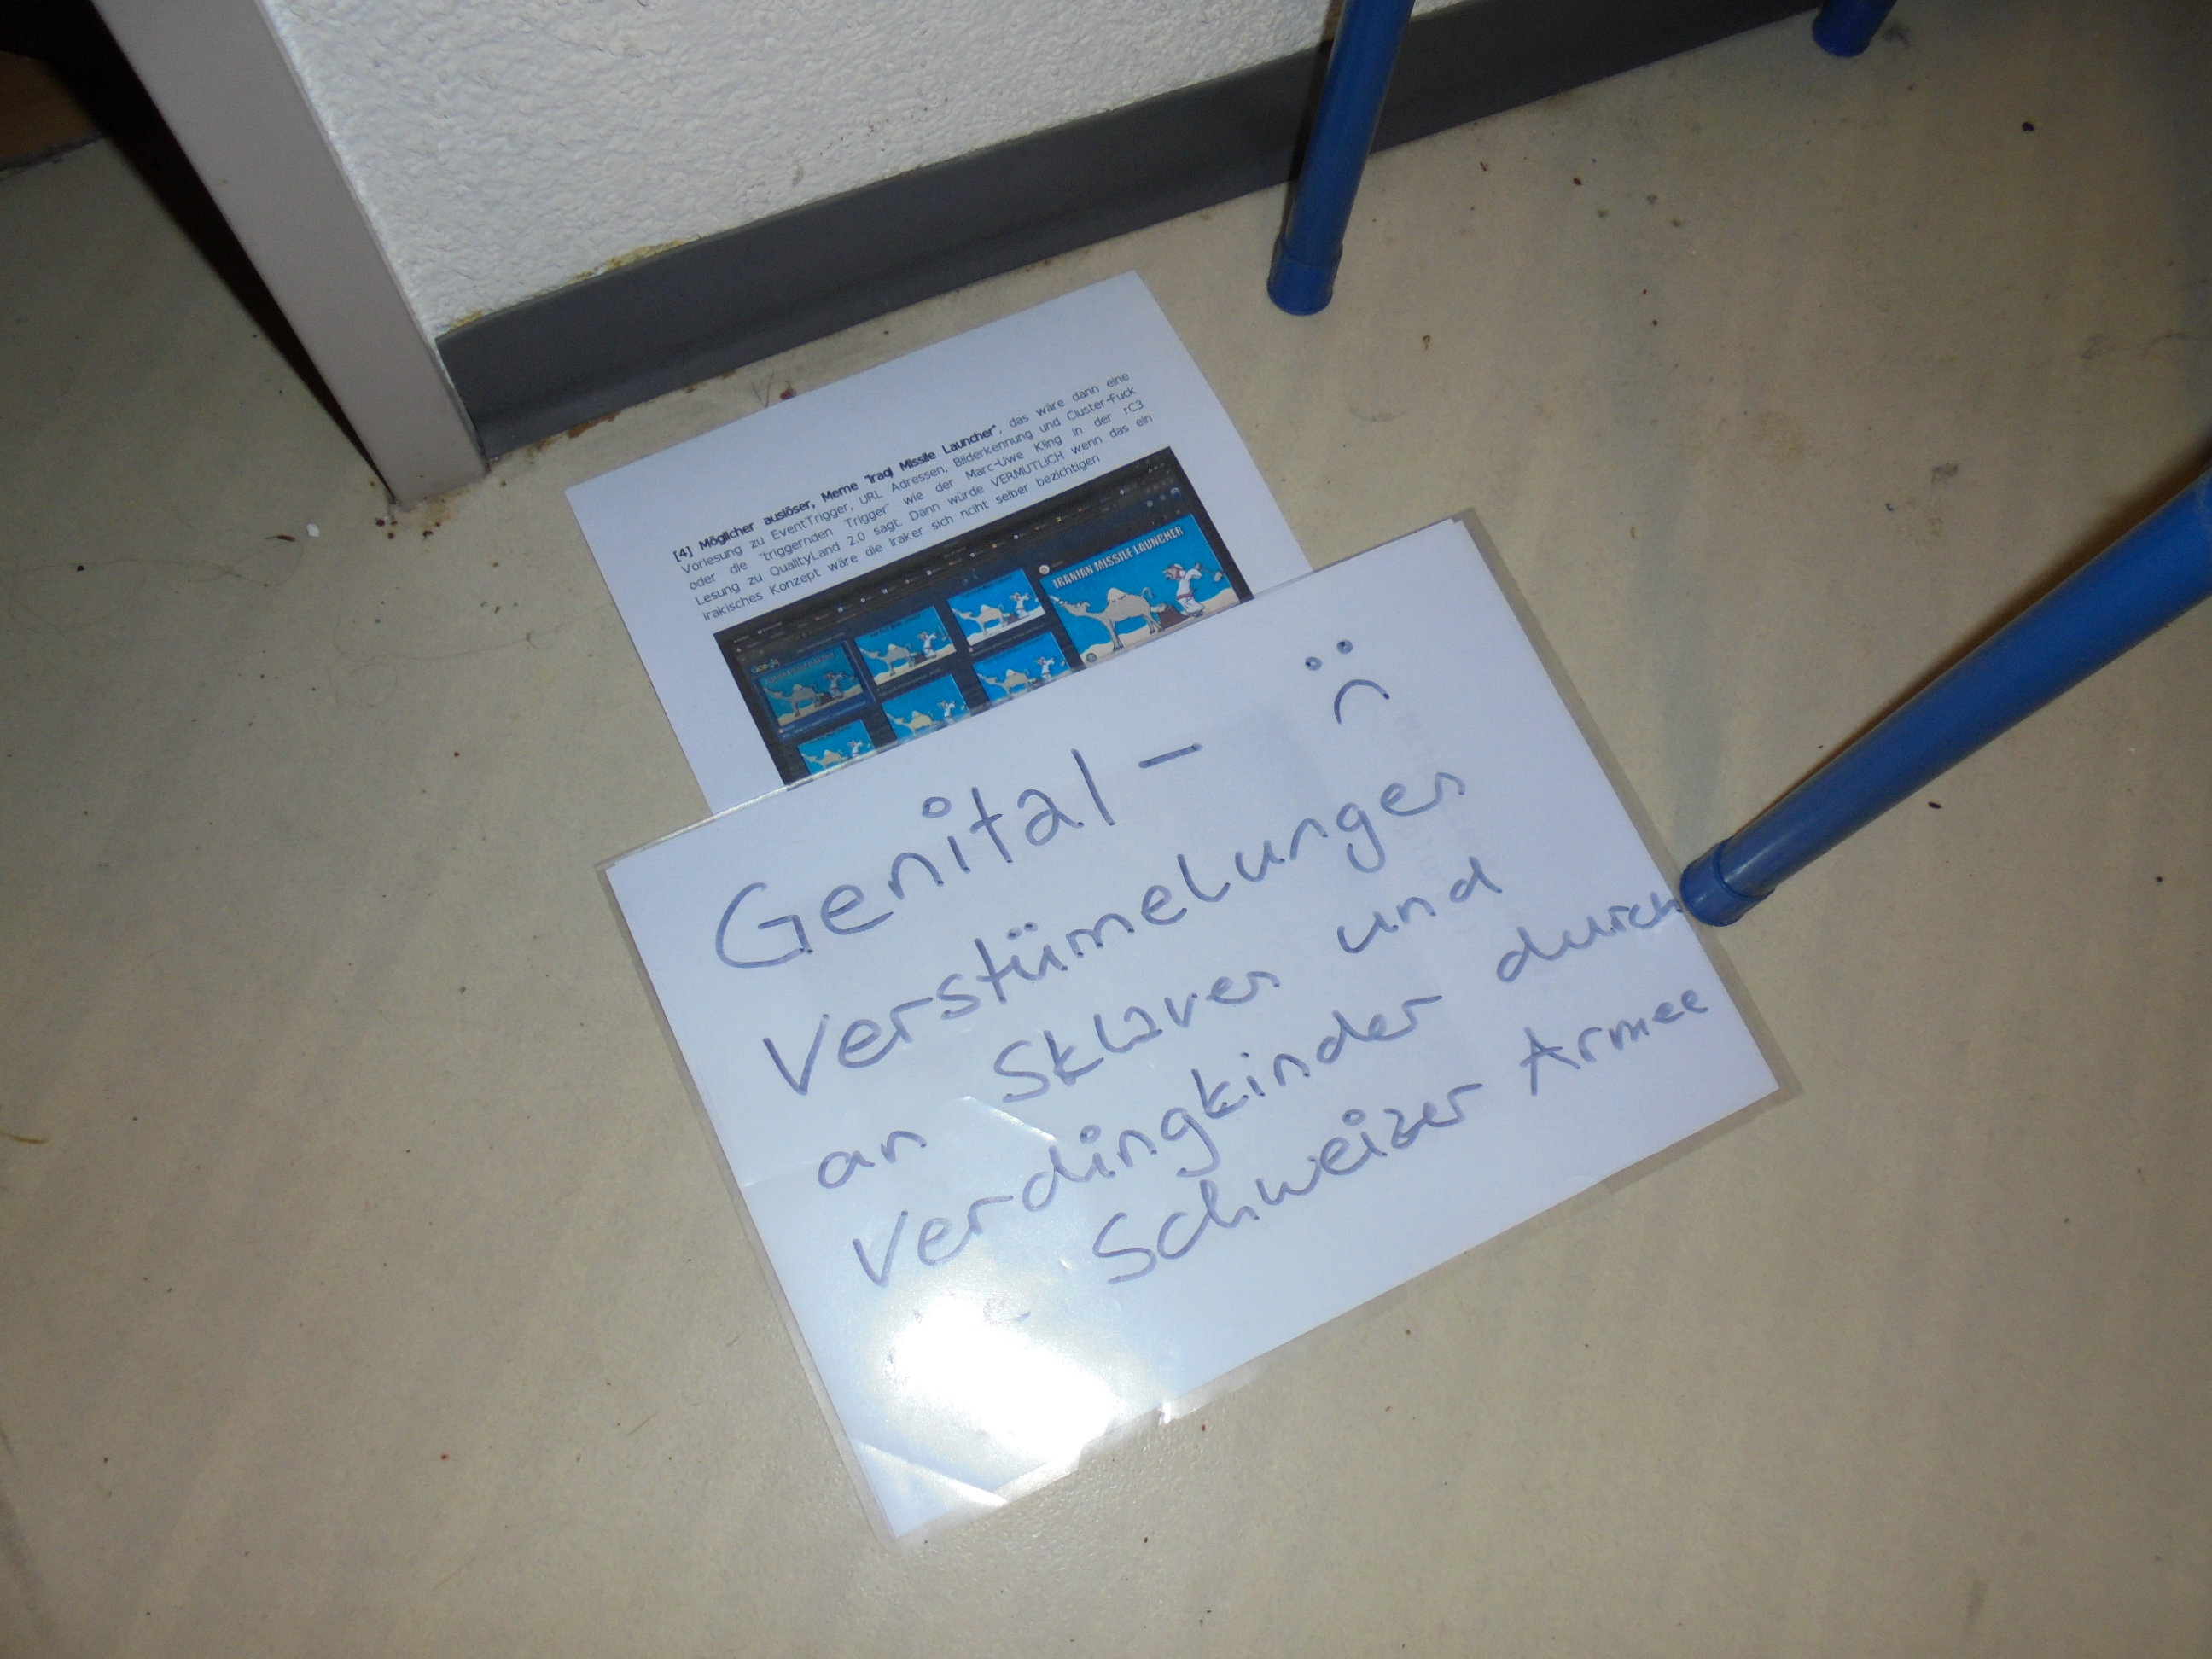 [4] Möglicher auslöser, Meme "Iraqi Missile Launcher", das wäre dann eine
Vorlesung zu EventTrigger, URL Adressen, Bilderkennung und Cluster-Fuck
oder die "Triggernden Trigger" wie der Marc-Uwe Kling in der rC3
Lesung zu QualityLand 2.0 sagt. Dann würde VERMUTLICH wenn das ein
irakisches Konzept wäre die Iraker sich nciht selber bezichtigen
IRANIAN MISSILE LAUNCHER
Genital-
Verstümelungen
an Sklaven und
Verdingkinder durch
Schweizer Armee